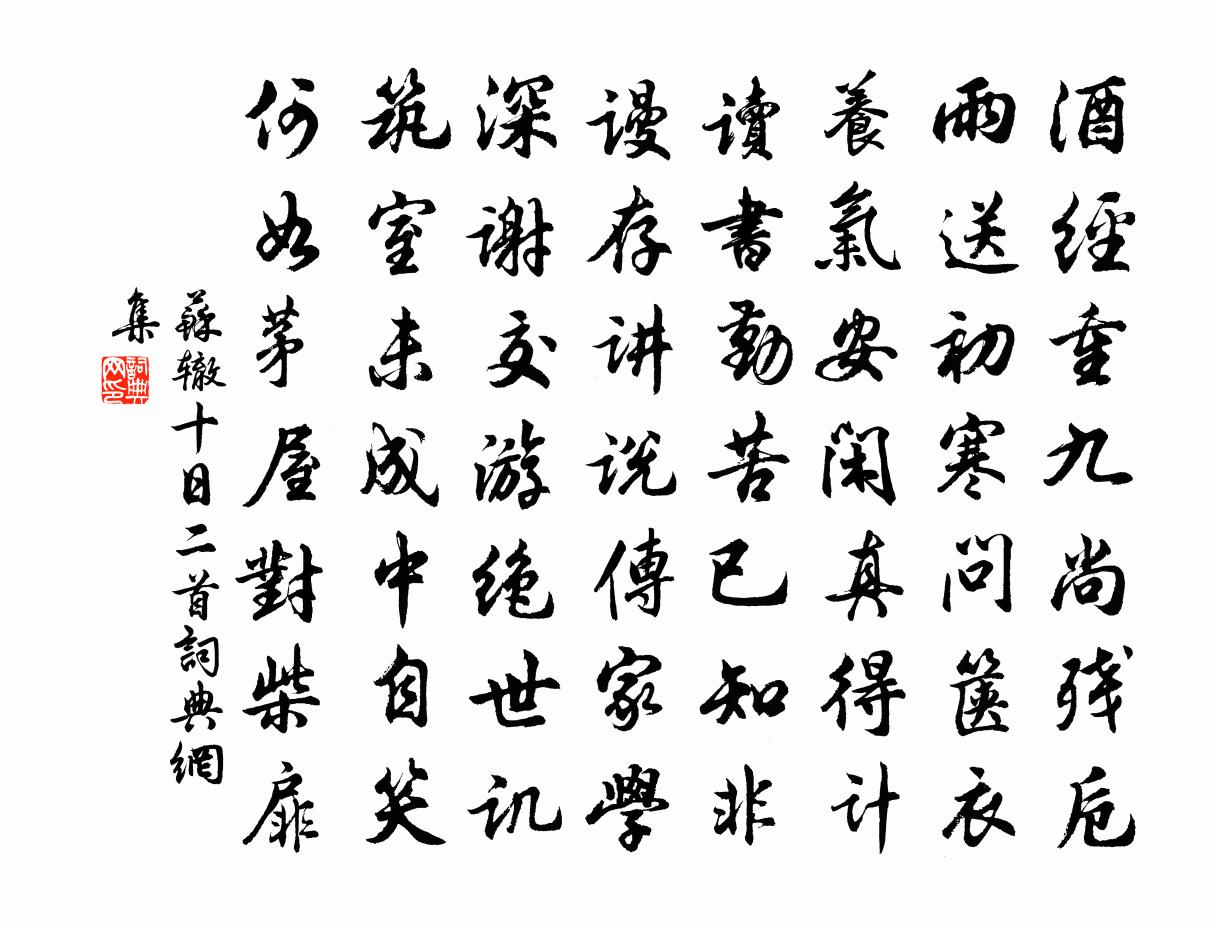 酒經重九尚残卮
雨送初寒問篋衣
養氣安閑真得计
讀書勤苦已知非
谩存讲说傳家學
深謝交游绝世讥
筑室未成中自笑
何如茅屋對柴扉
蘇辙十日二首詞典網
集
詞典网印